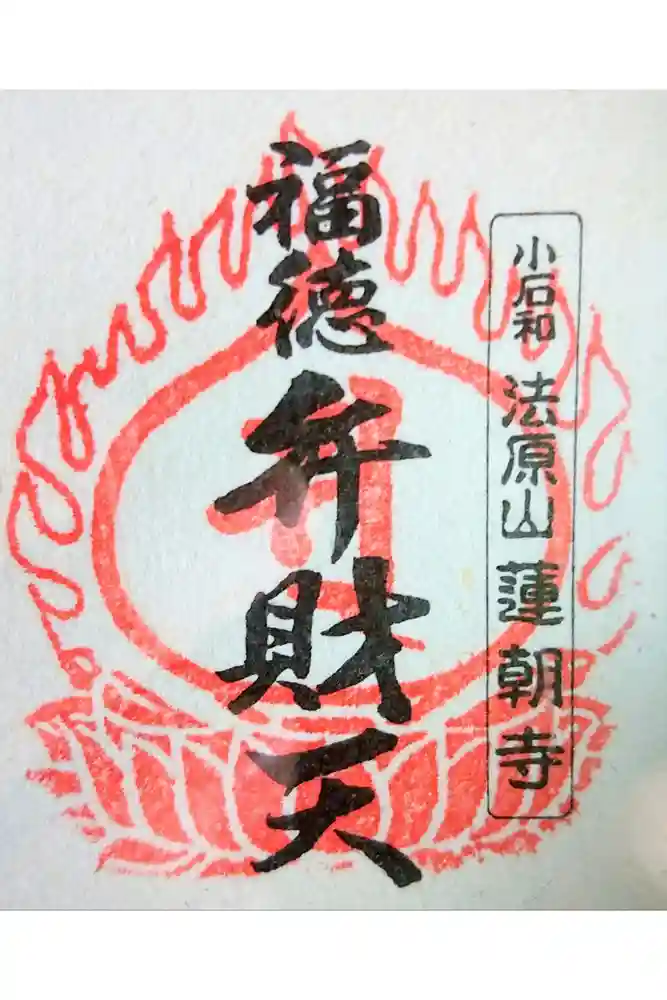 小石和 法原山 蓮朝寺
福徳弁財天